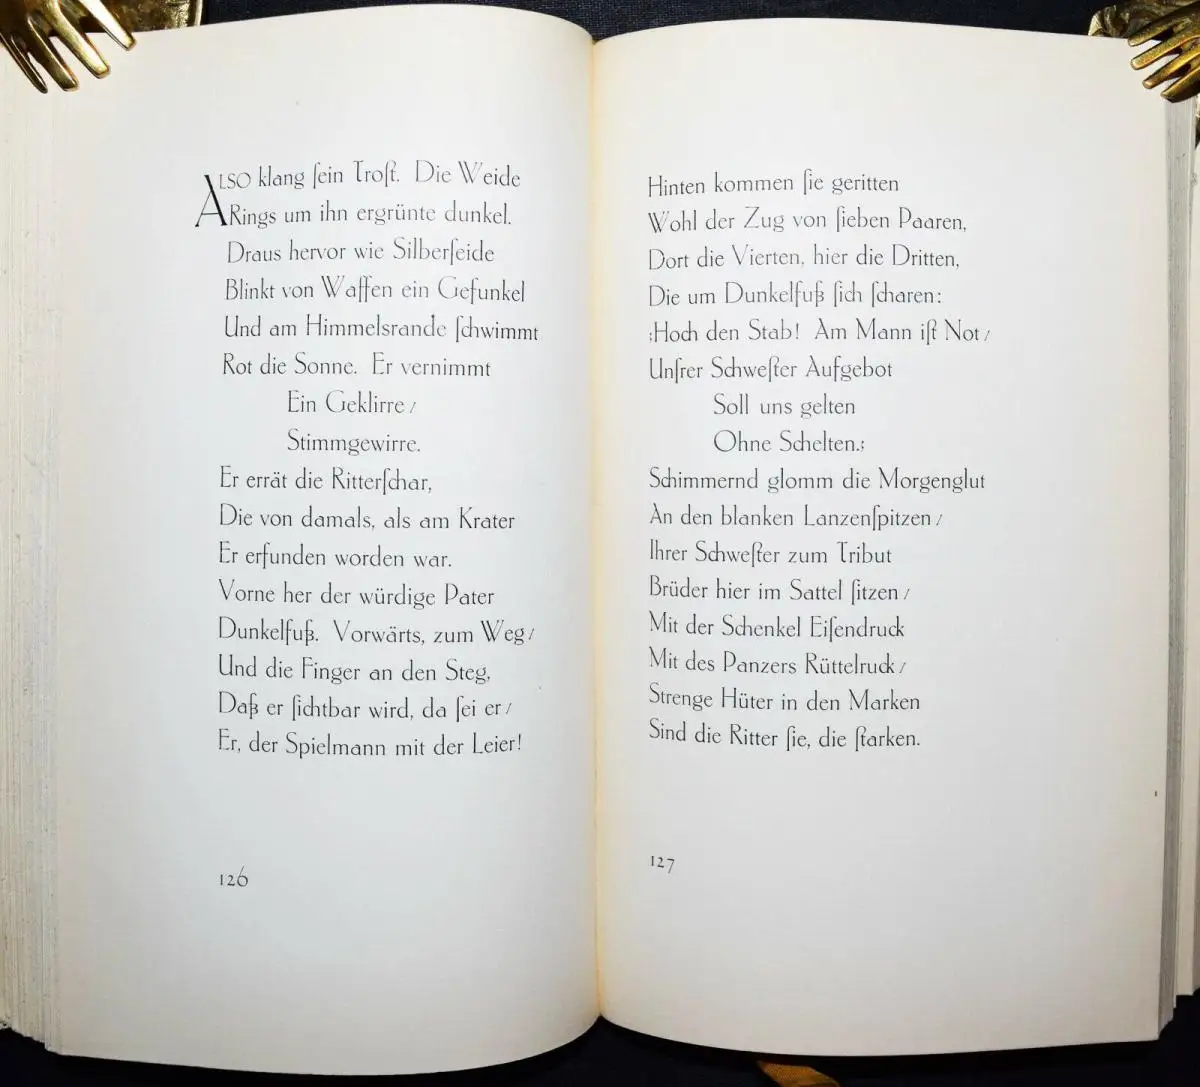 ALSO klang ſein Troſt. Die Weide
Rings um ihn ergrünte dunkel.
Draus hervor wie Silberſeide
Blinkt von Waffen ein Gefunkel
Und am Himmelsrande ſchwimmt
Rot die Sonne. Er vernimmt
Ein Geklirre/
Stimmgewirre.
Er errät die Ritterſchar,
Die von damals, als am Krater
Er erfunden worden war.
Vorne her der würdige Pater
Dunkelfuß. Vorwärts, zum Weg/
Und die Finger an den Steg,
Daß er ſichtbar wird, da ſei er/
Er, der Spielmann mit der Leier!
126
Hinten kommen ſie geritten
Wohl der Zug von ſieben Paaren,
Dort die Vierten, hier die Dritten,
Die um Dunkelfuß ſich ſcharen:
;Hoch den Stab! Am Mann iſt Not/
Unſrer Schweſter Aufgebot
Soll uns gelten
Ohne Schelten.;
Schimmernd glomm die Morgenglut
An den blanken Lanzenſpitzen/
Ihrer Schweſter zum Tribut
Brüder hier im Sattel ſitzen/
Mit der Schenkel Eiſendruck
Mit des Panzers Rüttelruck/
Strenge Hüter in den Marken
Sind die Ritter ſie, die ſtarken.
127